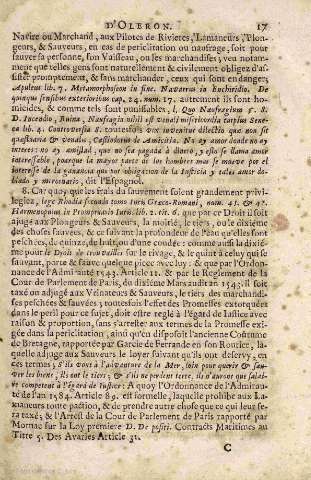 D'OLERON. 17
Navire ou Marchand, aux Pilotes de Rivieres, Lamaneurs, Plon-
geurs, & Sauveurs, en cas de periclitation ou naufrage, soit pour
sauver sa personne, son Vaisseau, ou ses marchandises; veu notam-
ment que telles gens sont naturellement & civilement obligez d'as-
sister promptement, & sans marchander, ceux qui sont en danger;
Apuleus lib. 7. Metamorphoseon in fine. Navarrus in Enchiridio. De
quaque finibus exterioribus cap. 24. num. 17. autrement ils sont ho-
micides, & comme tels sont punissables, l. Quo Naufragium §. 8.
D. Incendio, Ruina, Naufragio nihil est venali misericordia turpius Sene-
ca lib. 4. Controversia 8. toutesfois vix invenitur dilectio quæ non sit
quæstuaria & venalis, Cassiodorus de Amicitia. No ay amor donde no ay
interes: no ay amistad, que no sea pagada à dinero, y ella se llama amor
interessable, porque la mayor parte de los hombres mas se mueve por el
interesse de la ganancia que por obligacion de la Iusticia y tales amor do-
blado y mercenario, dit l'Espagnol.
8. Car quoy que les frais du sauvement soient grandement privi-
legiez, lege Rhodia secunda tomo Iuris Græco-Romani, num. 45. & 47.
Harmenopulus in Promptuario Iuris, lib. 2. tit. 6. que par ce Droit il soit
ajugé aux Plongeurs & Sauveurs, la moitié, le tiers, ou le dixiéme
des choses sauvées, & ce suivant la profondeur de l'eau qu'elles sont
peschées, de quinze, de huit, ou d'une coudée: comme aussi la dixié-
me pour le Droit de travailler sur le rivage, & le quint à celuy qui se
sauvant, porte & sauve quelque piece avec luy; & que par l'Ordon-
nance de l'Admirauté 1543. Article 11. & par le Reglement de la
Cour de Parlement de Paris, du dixiéme Mars audit an 1543, il soit
taxé ou adjugé aux Venateurs & Sauveurs, le tiers des marchandi-
ses peschées & sauvées; toutesfois l'effet des Promesses extorquées
dans le peril pour ce sujet, doit estre reglé à l'égard de Iustice avec
raison & proportion, sans s'arrester aux termes de la Promesse exi-
gée dans la periclitation, ainsi qu'en dispose l'ancienne Coustume
de Bretagne, rapportée par Garcie de Ferrande en son Routier, la-
quelle adjuge aux Sauveurs le loyer suivant qu'ils ont deservy, en
ces termes; S'ils vont à l'adventure de la Mer, loin pour querir & sau-
ver les biens, ils ont le tiers; & s'ils ne perdent terre, ils n'auront que salai-
re competent à l'égard de Iustice: A quoy l'Ordonnance de l'Admirau-
té de l'an 1584. Article 89. est formelle, laquelle prohibe aux La-
maneurs toute paction, & de prendre autre chose que ce qui leur se-
ra taxé; & l'Arrest de la Cour de Parlement de Paris rapporté par
Mornac sur la Loy premiere D. De positi. Contracts Maritimes au
Titre 5. Des Avaries Article 31.
C